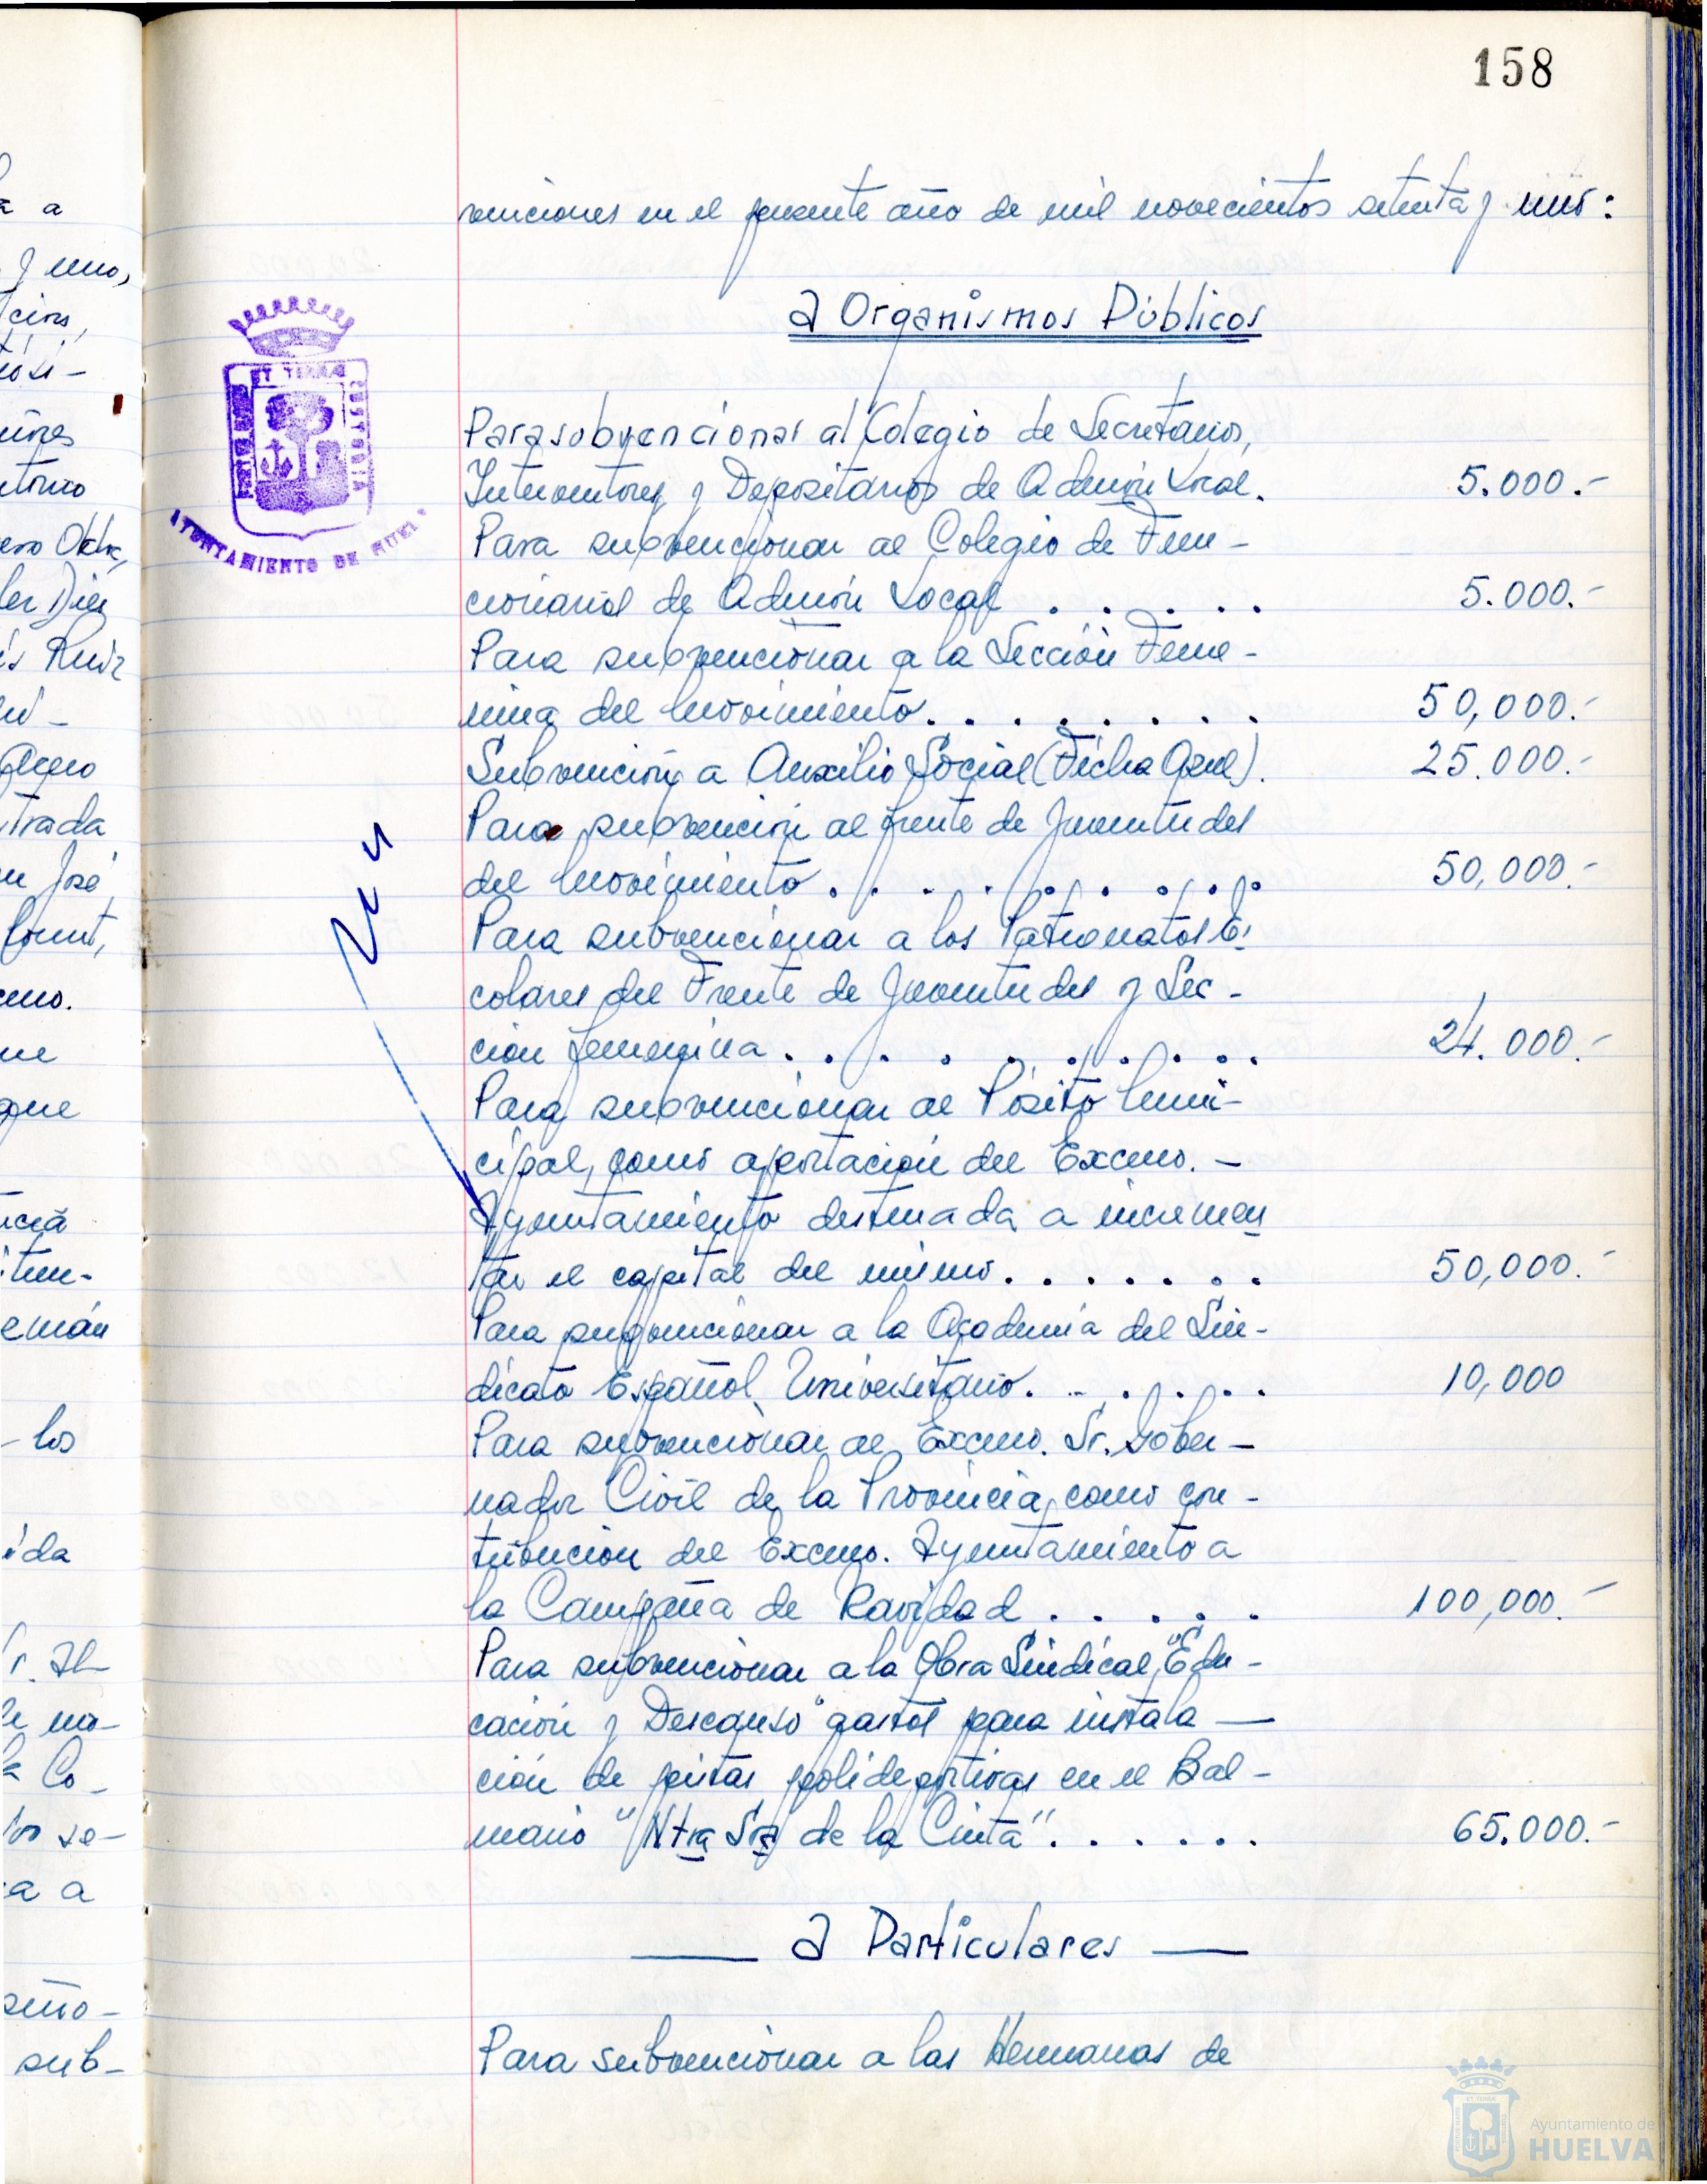 158
venciones en el presente año de mil novecientos setenta y uno:
a Organismos Públicos
Para subvencionar al Colegio de Secretarios,
Interventores y Depositarios de Admón Local. 5.000.-
Para subvencionar al Colegio de Fun-
cionarios de Admón Local . . . . . 5.000.-
Para subvencionar a la Sección Feme-
nina del Movimiento. . . . . . . 50,000.-
Subvención a Auxilio Social (Ficha Azul). 25.000.-
Para subvención al frente de Juventudes
del Movimiento . . . . . . . . . 50,000.-
Para subvencionar a los Patronatos Es
colares del Frente de Juventudes y Sec-
ción femenina . . . . . . . . . 24.000.-
Para subvencionar al Pósito Muni-
cipal, como aportación del Excmo. -
Ayuntamiento destinada a incremen
tar el capital del mismo. . . . . . . 50,000.-
Para subvencionar a la Academia del Sin-
dicato Español Universitario. . . . . . 10,000
Para subvencionar al Excmo. Sr. Gober-
nador Civil de la Provincia, como con-
tribución del Excmo. Ayuntamiento a
la Campaña de Navidad . . . . . 100,000.-
Para subvencionar a la Obra Sindical "Edu-
cación y Descanso" gastos para instala-
ción de pistas polideportivas en el Bal-
neario "Ntra Sra de la Cinta". . . . . . 65.000.-
— a Particulares —
Para subvencionar a las Hermanas de
AYUNTAMIENTO DE HUELVA
Ayuntamiento de
HUELVA